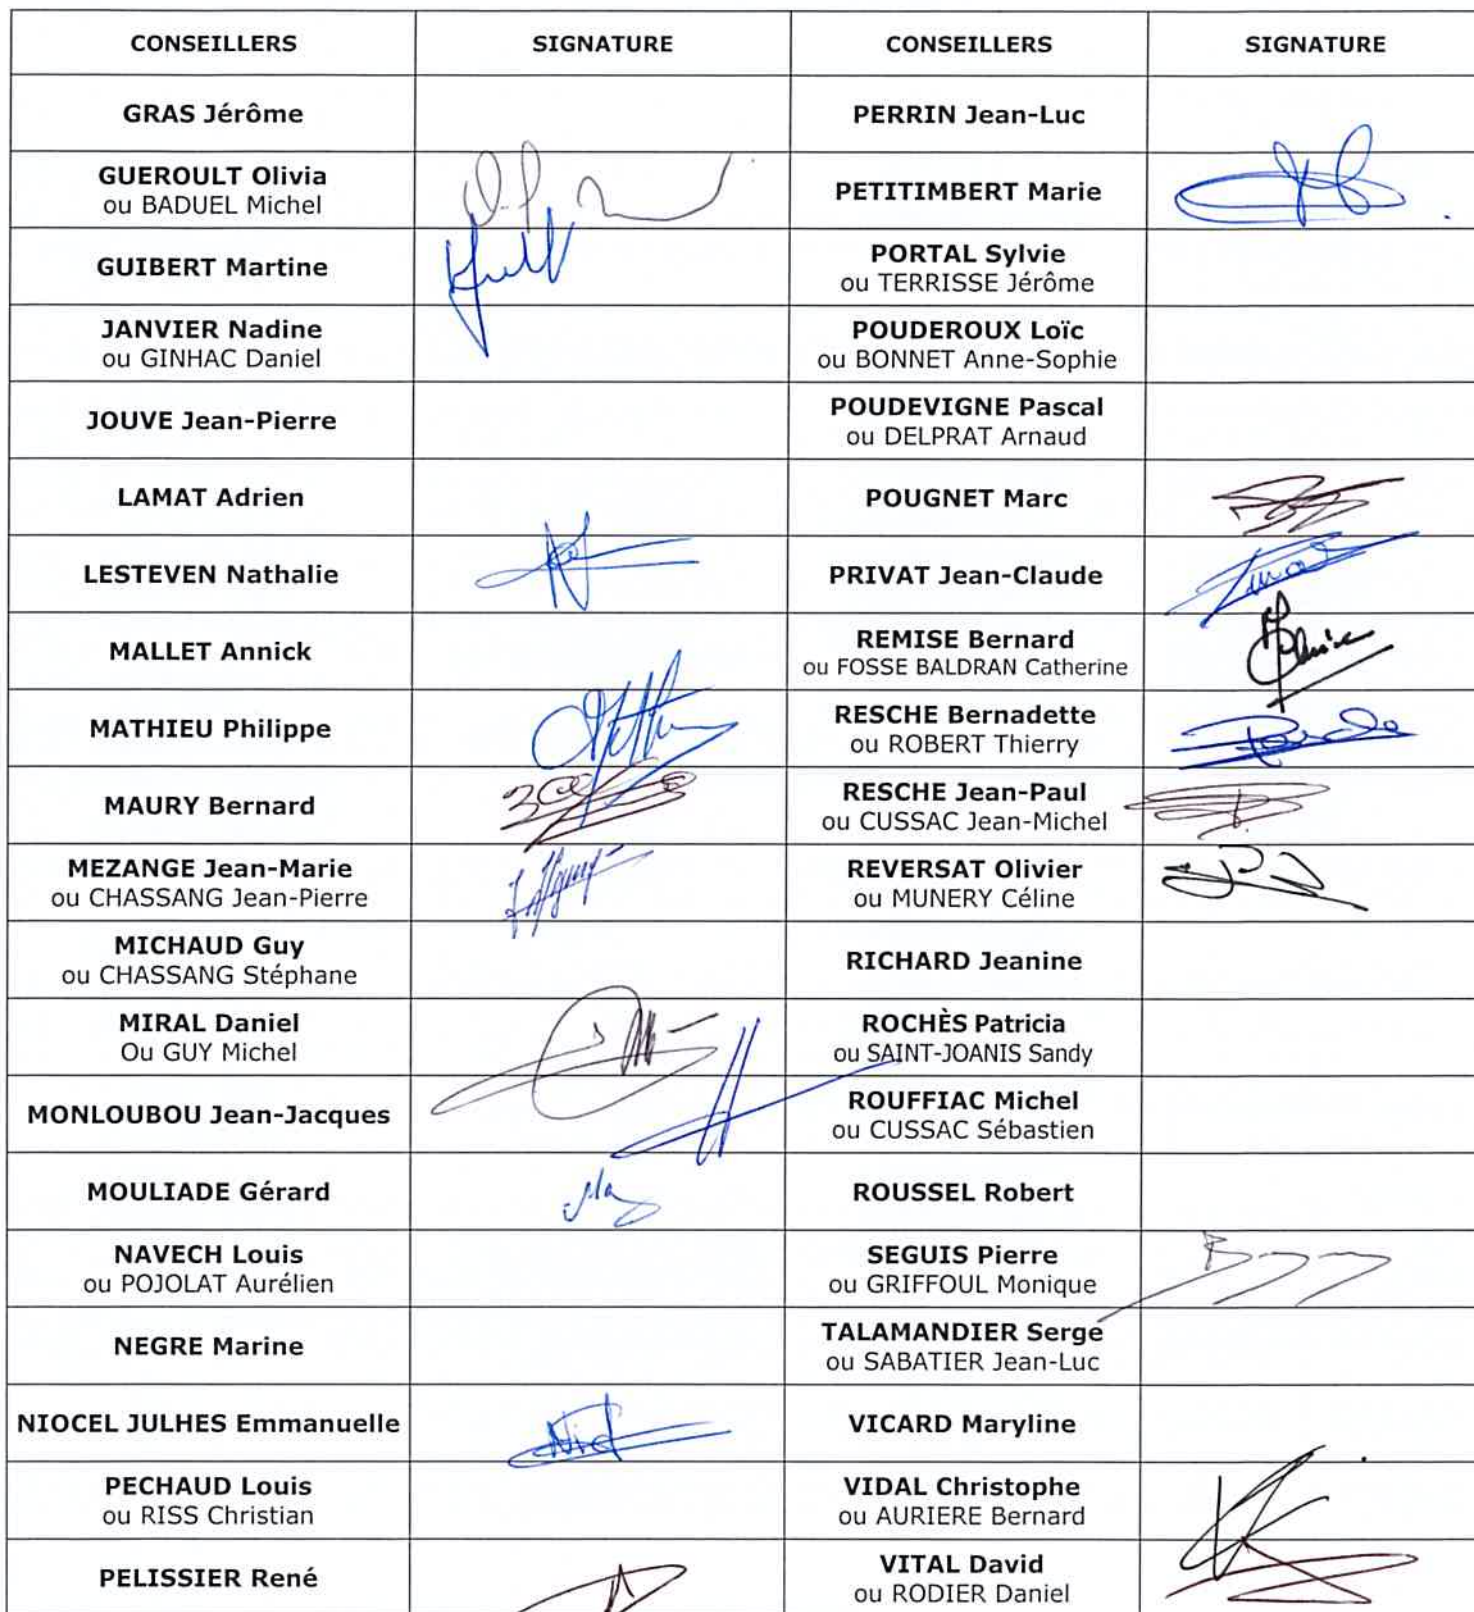 CONSEILLERS SIGNATURE CONSEILLERS SIGNATURE
GRAS Jérôme PERRIN Jean-Luc
GUEROULT Olivia
ou BADUEL Michel
PETITIMBERT Marie
GUIBERT Martine
PORTAL Sylvie
ou TERRISSE Jérôme
JANVIER Nadine
ou GINHAC Daniel
POUDEROUX Loïc
ou BONNET Anne-Sophie
JOUVE Jean-Pierre
POUDEVIGNE Pascal
ou DELPRAT Arnaud
LAMAT Adrien
POUGNET Marc
LESTEVEN Nathalie
PRIVAT Jean-Claude
MALLET Annick
REMISE Bernard
ou FOSSE BALDRAN Catherine
MATHIEU Philippe
RESCHE Bernadette
ou ROBERT Thierry
MAURY Bernard
RESCHE Jean-Paul
ou CUSSAC Jean-Michel
MEZANGE Jean-Marie
ou CHASSANG Jean-Pierre
REVERSAT Olivier
ou MUNERY Céline
MICHAUD Guy
ou CHASSANG Stéphane
RICHARD Jeanine
MIRAL Daniel
Ou GUY Michel
ROCHÈS Patricia
ou SAINT-JOANIS Sandy
MONLOUBOU Jean-Jacques
ROUFFIAC Michel
ou CUSSAC Sébastien
MOULIADE Gérard
ROUSSEL Robert
NAVECH Louis
ou POJOLAT Aurélien
SEGUIS Pierre
ou GRIFFOUL Monique
NEGRE Marine
TALAMANDIER Serge
ou SABATIER Jean-Luc
NIOCEL JULHES Emmanuelle
VICARD Maryline
PECHAUD Louis
ou RISS Christian
VIDAL Christophe
ou AURIERE Bernard
PELISSIER René
VITAL David
ou RODIER Daniel